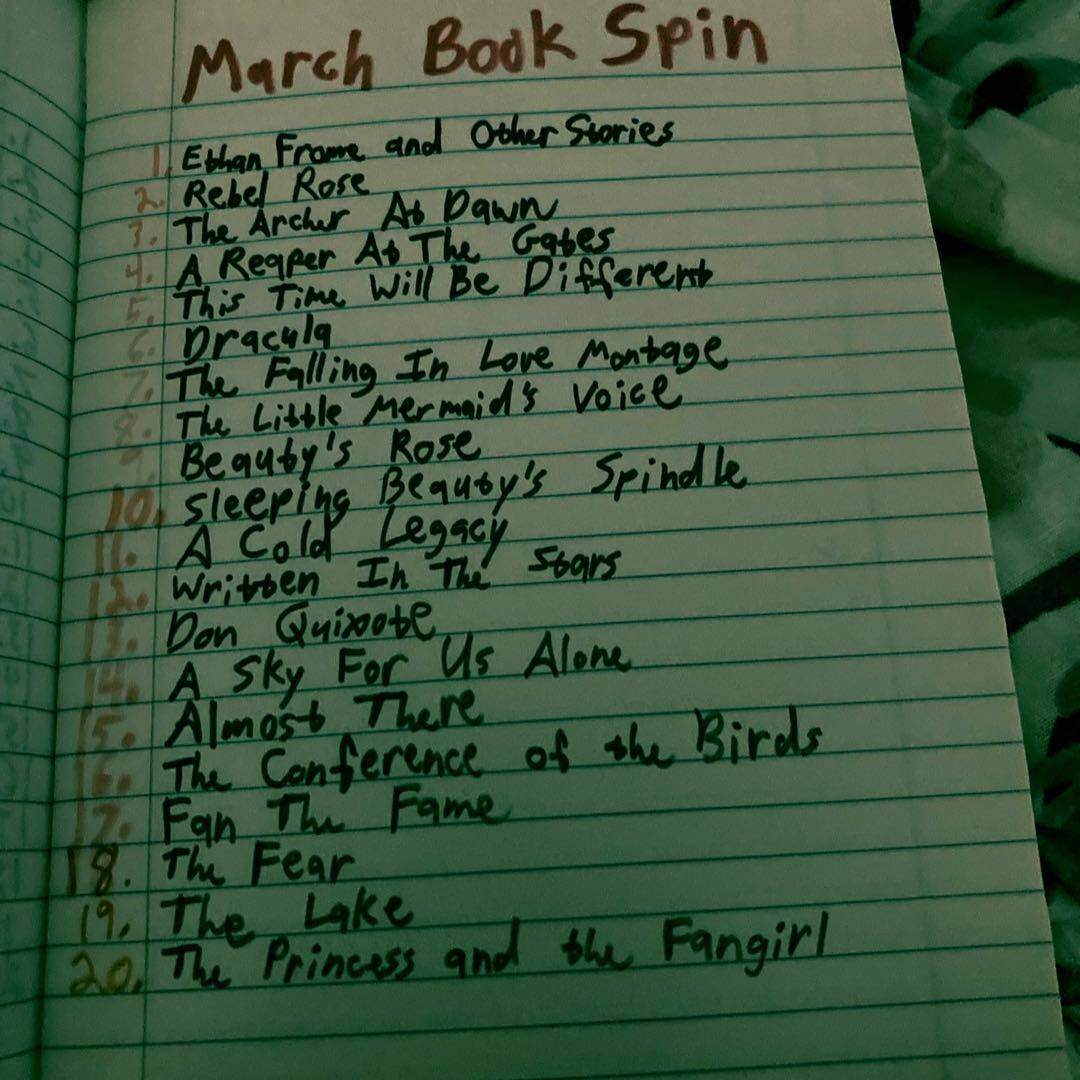 March Book Spin
1. Ethan Frome and Other Stories
2. Rebel Rose
3. The Archer At Dawn
4. A Reaper At The Gates
5. This Time Will Be Different
6. Dracula
7. The Falling In Love Montage
8. The Little Mermaid's Voice
9. Beauty's Rose
10. Sleeping Beauty's Spindle
11. A Cold Legacy
12. Written In The Stars
13. Don Quixote
14. A Sky For Us Alone
15. Almost There
16. The Conference of the Birds
17. Fan The Fame
18. The Fear
19. The Lake
20. The Princess and the Fangirl